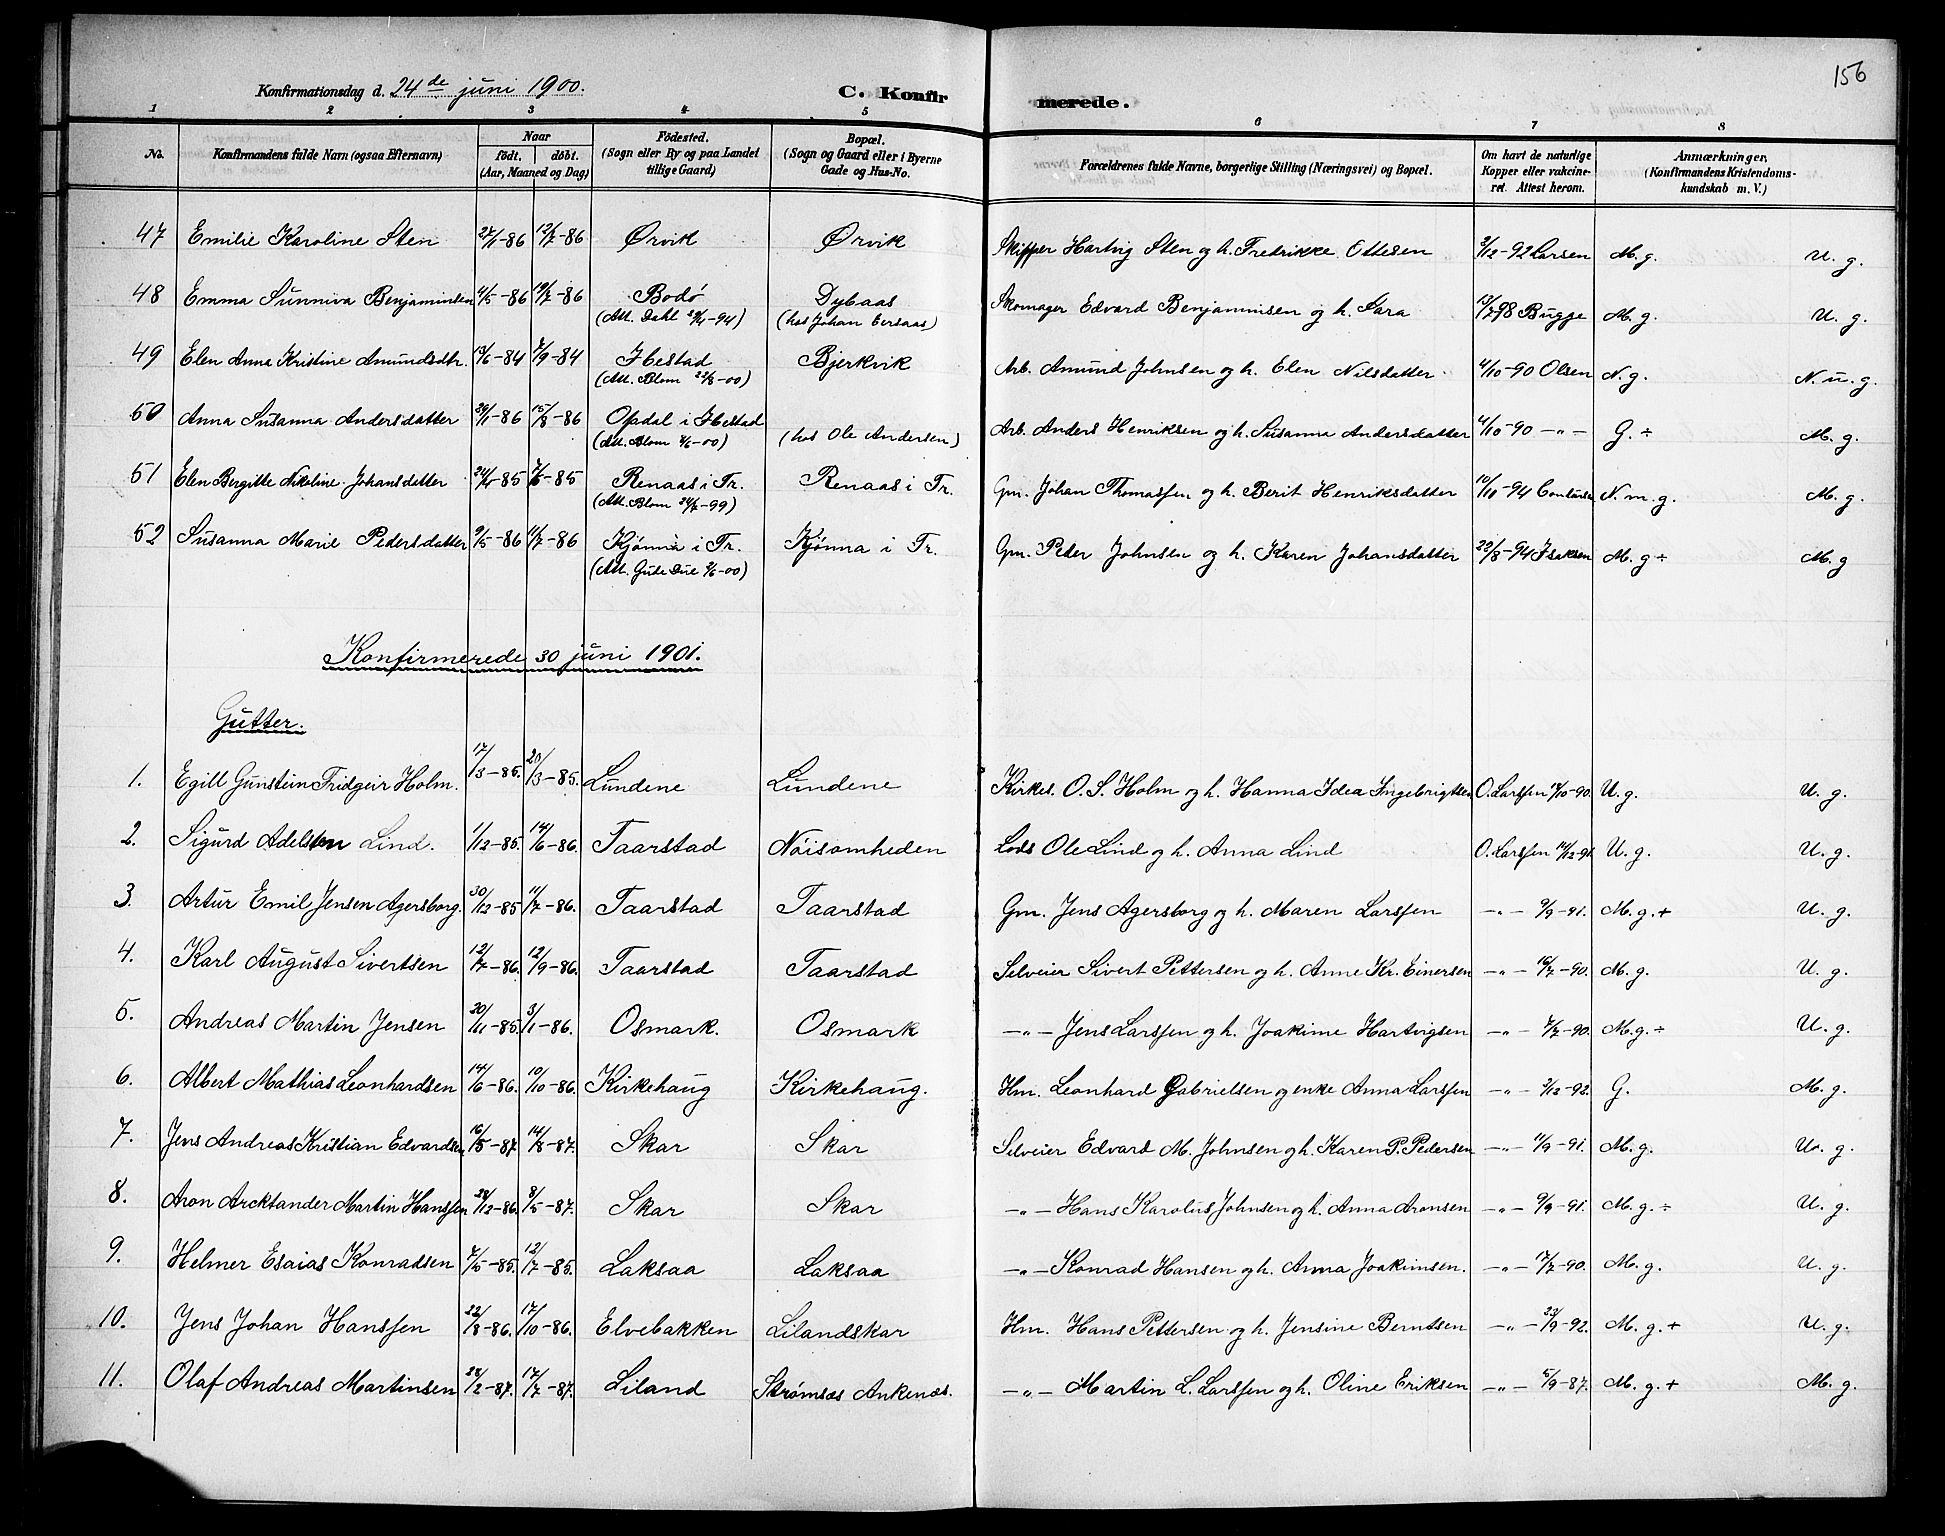 156
Konfirmationsdag d. 24de juni 1900. C. Konfirmerede.
1 2 3 4 5 6 7 8
No. Konfirmandens fulde Navn (ogsaa Efternavn) Naar født. døbt. (Aar, Maaned og Dag) Fødested. (Sogn eller By og paa Landet tillige Gaard) Bopæl. (Sogn og Gaard eller i Byerne Gade og Hus-No. Forældrenes fulde Navne, borgerlige Stilling (Næringsvei) og Bopæl. Om havt de naturlige Kopper eller vakcineret. Attest herom. Anmærkninger. (Konfirmandens Kristendomskundskab m. V.)
47 Emilie Karoline Sten 27/1-86 12/7-86 Ørvik Ørvik Skipper Hartvig Sten og h. Fredrikke Ottesen 3/12-92 Larsen M. g. U. g.
48 Emma Sunniva Benjaminsen 4/5-86 19/7-86 Bodø Dybaas Skomager Edvard Benjaminsen og h. Sara 13/7 98 Bugge M. g. U. g.
(Att. Dahl 29/4-94) (hos Johan Eersaas)
49 Elen Anna Kristine Amundsdtr. 13/6-84 7/9-84 Ibestad Bjerkvik Arb. Amund Johnsen og h. Elen Nilsdatter 4/10-90 Olsen N. g. N. u. g.
(Att. Blom 22/3-00)
50 Anna Susanna Andersdatter 29/1-86 15/8-86 Opdal i Ibestad (hos Ole Andersen) Arb. Anders Henriksen og h. Susanna Andersdatter 4/10-90 -"- G. ÷ M. g.
(Att. Blom 4/6-00)
51 Elen Bergitte Nikoline Johansdatter 24/4-85 7/6-85 Renaas i Tr. Renaas i Tr. Gm. Johan Thomassen og h. Berit Henriksdatter 10/10-94 N. m. g. M. g.
(Att. Blom 24/7-99)
52 Susanna Marie Pedersdatter 9/5-86 11/7-86 Kjønna i Tr. Kjønna i Tr. Gm. Peder Johnsen og h. Karen Johansdatter 22/8-94 Isaksen M. g ÷ M. g
(Att. Gude Due 3/6-00)
Konfirmerede 30 juni 1901.
Gutter.
1. Egill Gunstein Fridgeir Holm. 17/3-85. 20/3-85. Lundene Lundene Kirkes. O. S. Holm og h. Hanna Idea Ingebrigtsen O. Larssen 14/10-90. U. g. U. g.
2. Sigurd Adelsten Lind. 1/12-85. 14/6-86. Taarstad Nøisomheden Lods Ole Lind og h. Anna Lind O. Larssen 14/12-91. U. g. U. g.
3. Artur Emil Jensen Agersborg. 30/12-85 11/7-86. Taarstad Taarstad Gm. Jens Agersborg og h. Maren Larssen -"- 9/9-91. M. g. + U. g.
4. Karl August Sivertsen 12/7-86. 12/9-86. Taarstad Taarstad Selveier Sivert Pettersen og h. Anne Kr. Einersen -"- 16/7-90. M. g. U. g.
5. Andreas Martin Jensen 30/11-85. 3/1-86. Osmark. Osmark -"- Jens Larssen og h. Joakime Hartvigsen -"- 7/7-90. M. g. ÷ U. g.
6. Albert Mathias Leonhardsen 14/6-86. 10/10-86. Kirkehaug Kirkehaug. Hm. Leonhard Gabrielsen og enke Anna Larssen -"- 3/12-92. G. M. g.
7. Jens Andreas Kristian Edvardsen 16/5-87. 14/8-87. Skar Skar Selveier Edvard M. Johnsen og h. Karen P. Pedersen -"- 11/9-91. M. g. U. g.
8. Aron Arcktander Martin Hanssen 28/12-86. 8/5-87. Skar Skar -"- Hans Karolus Johnsen og h. Anna Aronsen -"- 9/9-91. M. g. ÷ U. g.
9. Helmer Esaias Konradsen 7/5-85. 12/7-85. Laksaa Laksaa -"- Konrad Hansen og h. Anna Joakimsen. -"- 17/7-90. M. g. U. g.
10. Jens Johan Hanssen 22/8-86. 17/10-86. Elvebakken Lilandskar Hm. Hans Pettersen og h. Jensine Berntsen -"- 23/9-92. M. g. + U. g.
11. Olaf Andreas Martinsen 28/2-87. 17/7-87. Liland Strømsæs Ankenæs. -"- Martin L. Larssen og h. Oline Eriksen -"- 5/9-87. M. g. + M. g.